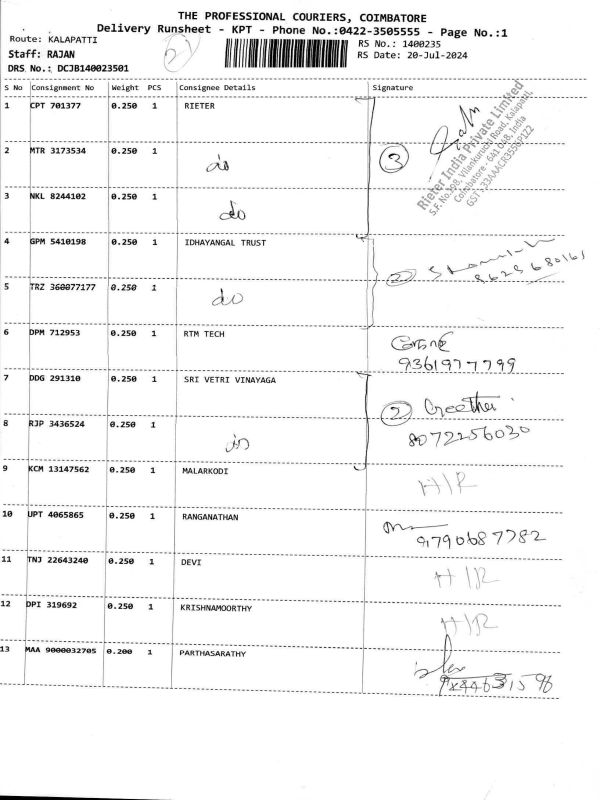 THE PROFESSIONAL COURIERS, COIMBATORE
Delivery Runsheet - KPT - Phone No.:0422-3505555 - Page No.:1
Route: KALAPATTI
RS No.: 1400235
Staff: RAJAN
RS Date: 20-Jul-2024
DRS No.: DCJB140023501
S No Consignment No Weight PCS Consignee Details Signature
1 CPT 701377 0.250 1 RIETER
Rieter India Private Limited
S.F. No.198, Vilankurichi Road, Kalapatti,
Coimbatore - 641 048, India
2 MTR 3173534 0.250 1 do 3
3 NKL 8244102 0.250 1 do
4 GPM 5410198 0.250 1 IDHAYANGAL TRUST
2
5 TRZ 360077177 0.250 1 do
6 DPM 712953 0.250 1 RTM TECH
9361977799
7 DDG 291310 0.250 1 SRI VETRI VINAYAGA
2 Geetha
8 RJP 3436524 0.250 1 8072256030
9 KCM 13147562 0.250 1 MALARKODI H/R
10 UPT 4065865 0.250 1 RANGANATHAN
9790687782
11 TNJ 22643240 0.250 1 DEVI H/R
12 DPI 319692 0.250 1 KRISHNAMOORTHY H/R
13 MAA 9000032705 0.200 1 PARTHASARATHY